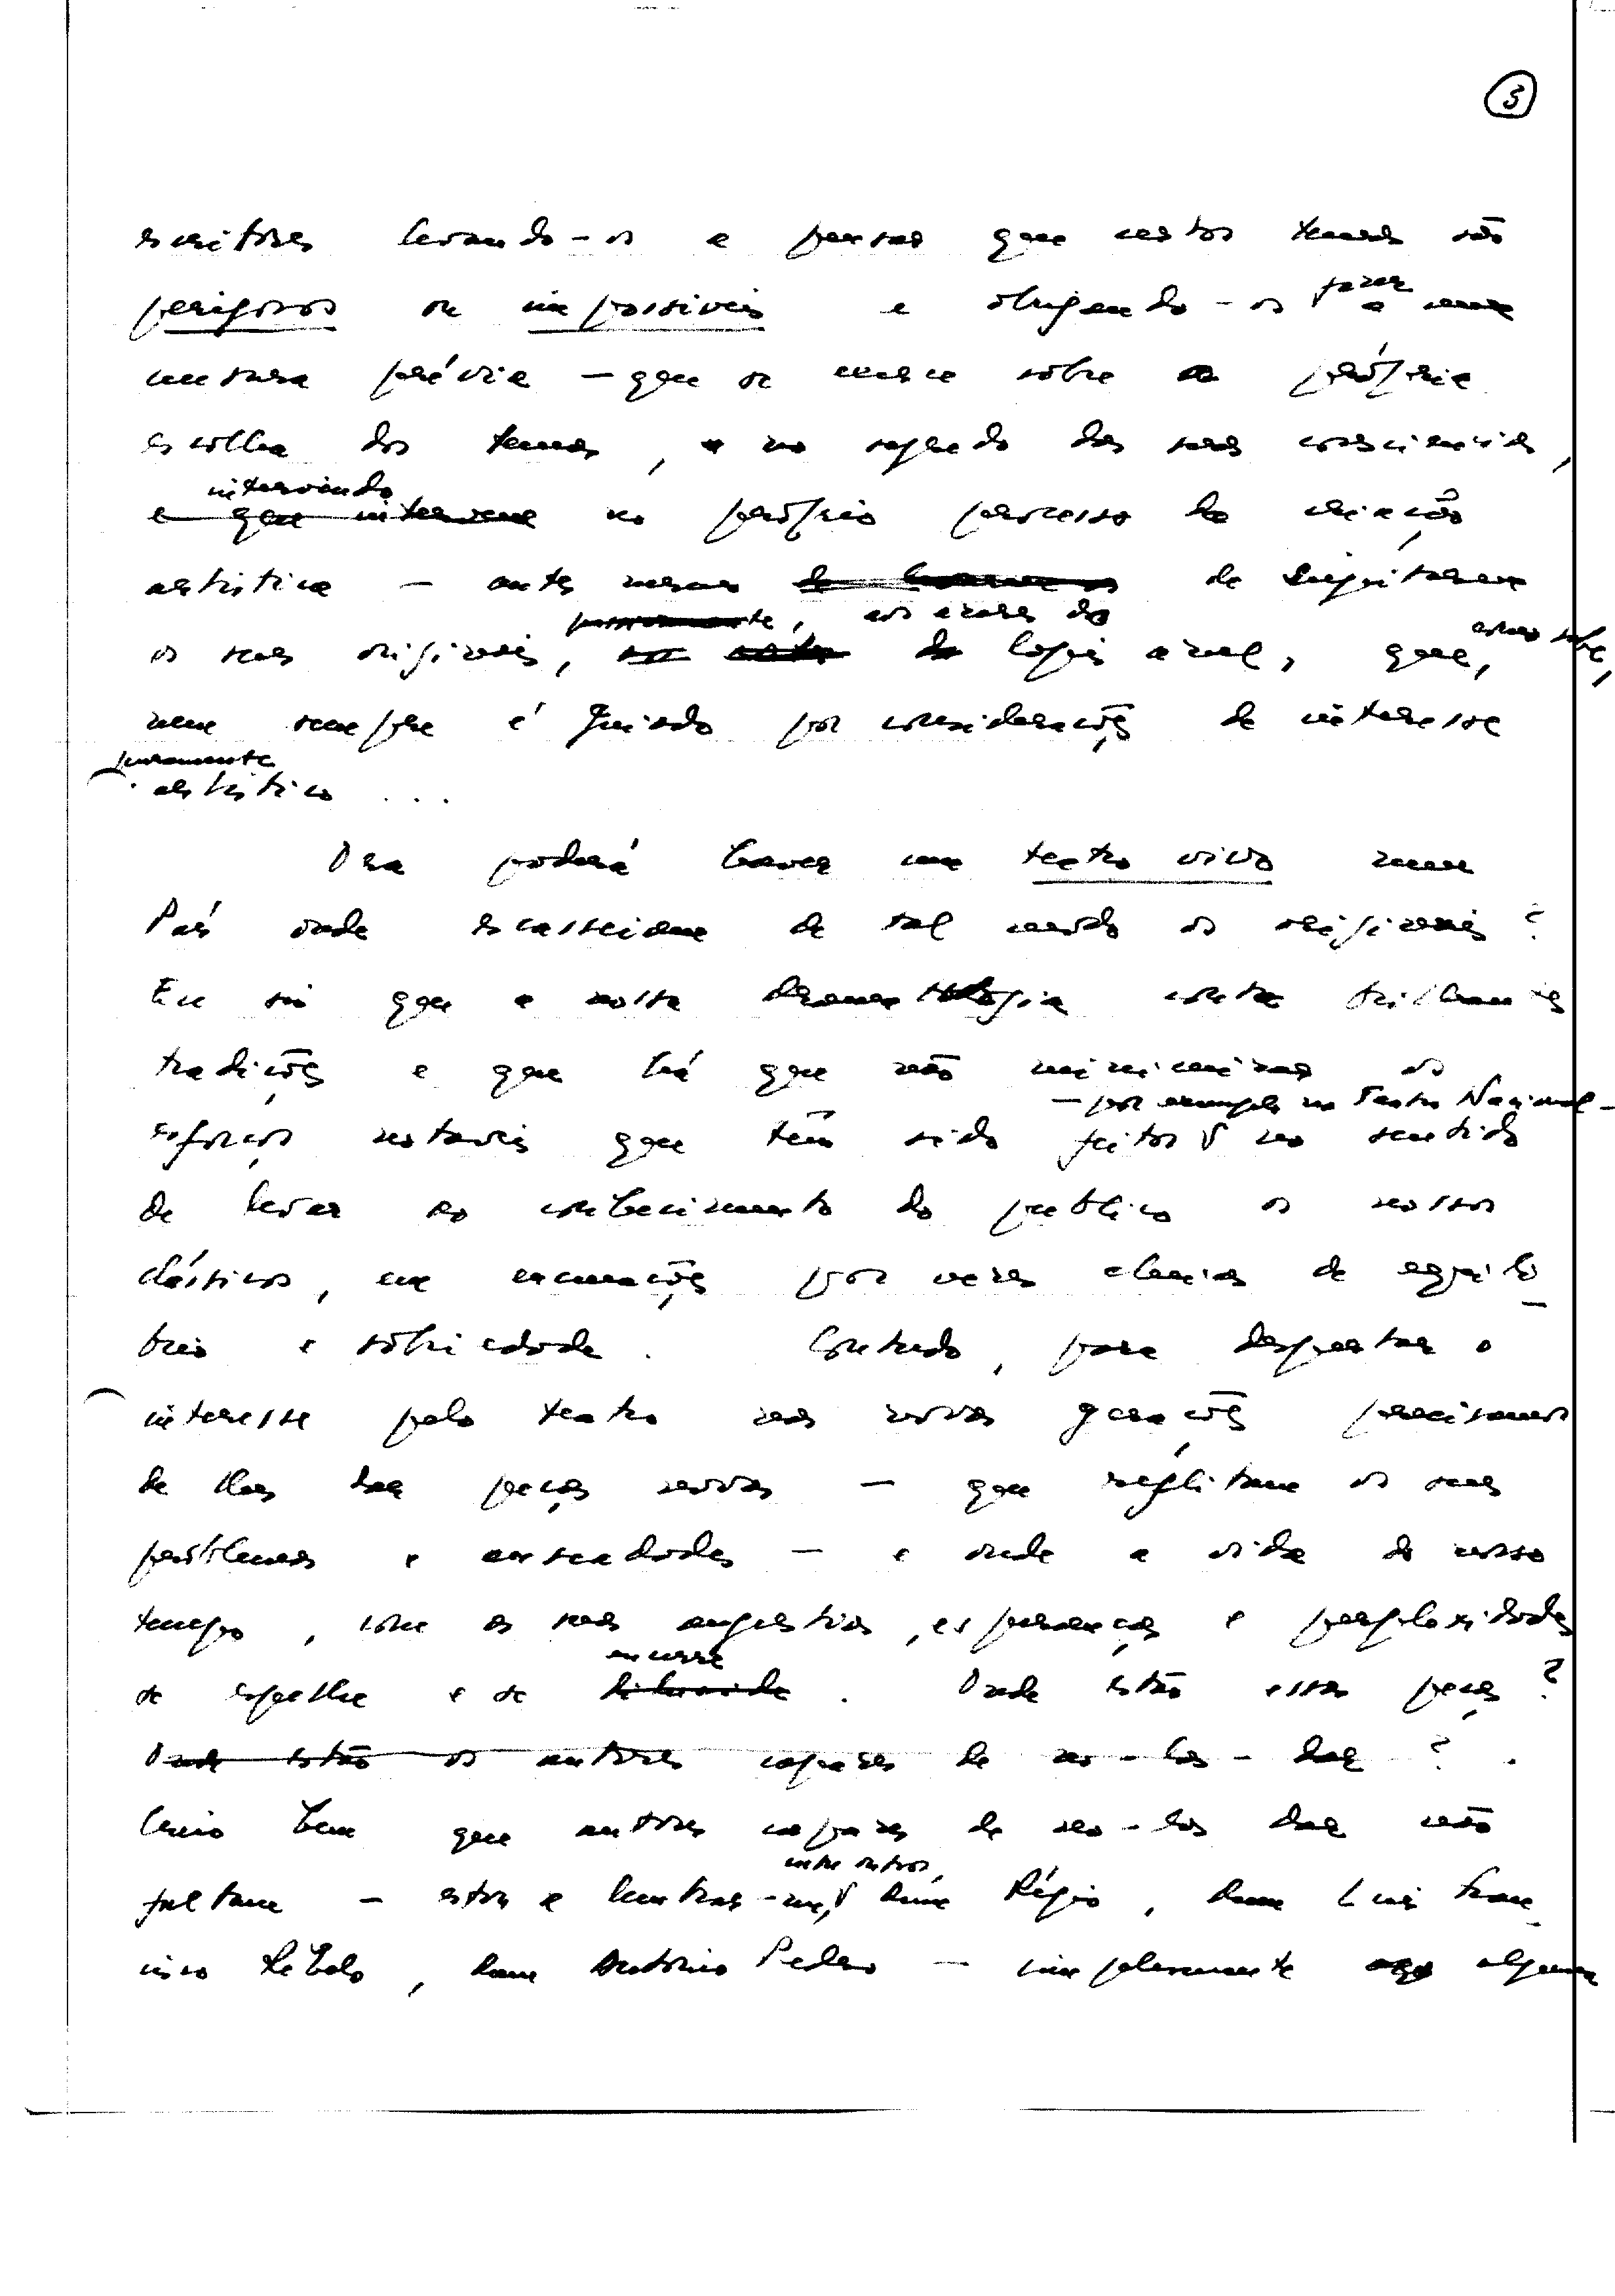 3
escritores levando-os a pensar que certos temas são
perigosos ou impossíveis e obrigando-os a fazer uma
censura prévia - que se exerce sôbre a própria
escolha dos temas, no segredo das suas consciencias,
intervindo
e que intervem no próprio processo da criação
artistica - antes mesmo de sujeitarem
, aos azares da
os seus originais, logia anual, que, como sabe,
nem sempre é guiado por considerações de interesse
puramente
artistico ...
Ora poderá haver um teatro vivo num
País onde escasseiam de tal modo os originais?
Eu sei que a nossa dramatologia conta brilhantes
tradições e que há que não minimizar os
- por exemplo no Teatro Nacional -
esforços notaveis que têm sido feitos no sentido
de levar ao conhecimento do publico os nossos
clássicos, em encenações por vezes cheias de equili-
brio e sobriedade. Contudo, para despertar o
interesse pelo teatro nas novas gerações precisamos
de lhes dar peças novas - que reflitam os seus
problemas e ansiedades - e onde a vida do nosso
tempo, com as suas angustias, esperanças e perplexidades
encerre
se espelhe e se . Onde estão essas peças?
Onde estão os autores capazes de no-las-dar?
Creio bem que autores capazes de no-las dar não
entre outros,
faltam - estou a lembrar-me, dum Régio, dum Luis Fran-
cisco Rebelo, dum António Pedro - simplesmente alguma